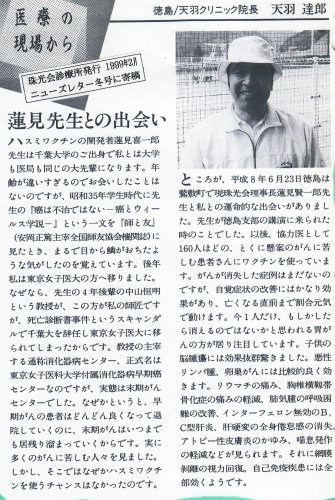 医療の
現場から
徳島/天羽クリニック院長 天羽 達郎
珠光会診療所発行 1999年2月
ニューズレター冬号に寄稿
蓮見先生との出会い
ハスミワクチンの開発者蓮見喜一郎
先生は千葉大学のご出身で私とは大学
も医局も同じの大先輩になります。年
齢が違いすぎるのでお会いしたことは
ないのですが、昭和35年学生時代に先
生の『癌は不治ではない―癌とウィー
ルス学説―』という一文を『師と友』
(安岡正篤主宰全国師友協会機関誌)に
見たとき、まるで目から鱗がおちたよ
うな気がしたのを覚えています。後年
私は東京女子医大の方へ移りました。
なぜなら、先生の4年後輩の中山恒明
という教授が、この方が私の師匠です
が、死亡診断書事件というスキャンダ
ルで千葉大を辞任し東京女子医大に移
られてしまったからです。教授の主宰
する通称消化器病センター、正式名は
東京女子医科大学付属消化器病早期癌
センターなのですが、実態は末期がん
センターでした。なぜかというと、早
期がんの患者はどんどん良くなって退
院していくのに、末期がんはいつまで
も居残り溜まっていくからです。実に
多くのがんに苦しむ人々を見ました。
しかし、そこではなぜかハスミワクチ
ンを使うチャンスはなかったのです。
ところが、平成8年6月23日徳島は
鷲敷町で現珠光会理事長蓮見賢一郎
先生と私との運命的な出会いがありま
した。先生が徳島支部の講演に来られた
時のことでした。以後、協力医として
160人ほどの、とくに懸案のがんに苦
しむ患者さんにワクチンを使っていま
す。がんが消失した症例はまだないの
ですが、自覚症状の改善にはかなり効
果があり、亡くなる直前まで割合元気
で動けます。今1人だけ、もしかした
ら消えるのではないかと思われる胃が
んの方が居り注目しています。子供の
脳腫瘍には効果抜群驚きました。悪性
リンパ腫、卵巣がんには比較的良く効
きます。リウマチの痛み、胸椎横靱帯
骨化症の痛みの軽減、肺気腫の呼吸困
難の改善、インターフェロン無効のB、
C型肝炎、肝硬変の全身倦怠感の消失、
アトピー性皮膚炎のかゆみ、喘息発作
の軽減などが見られます。それに網膜
剥離の視力回復。自己免疫疾患には全
部効くようです。